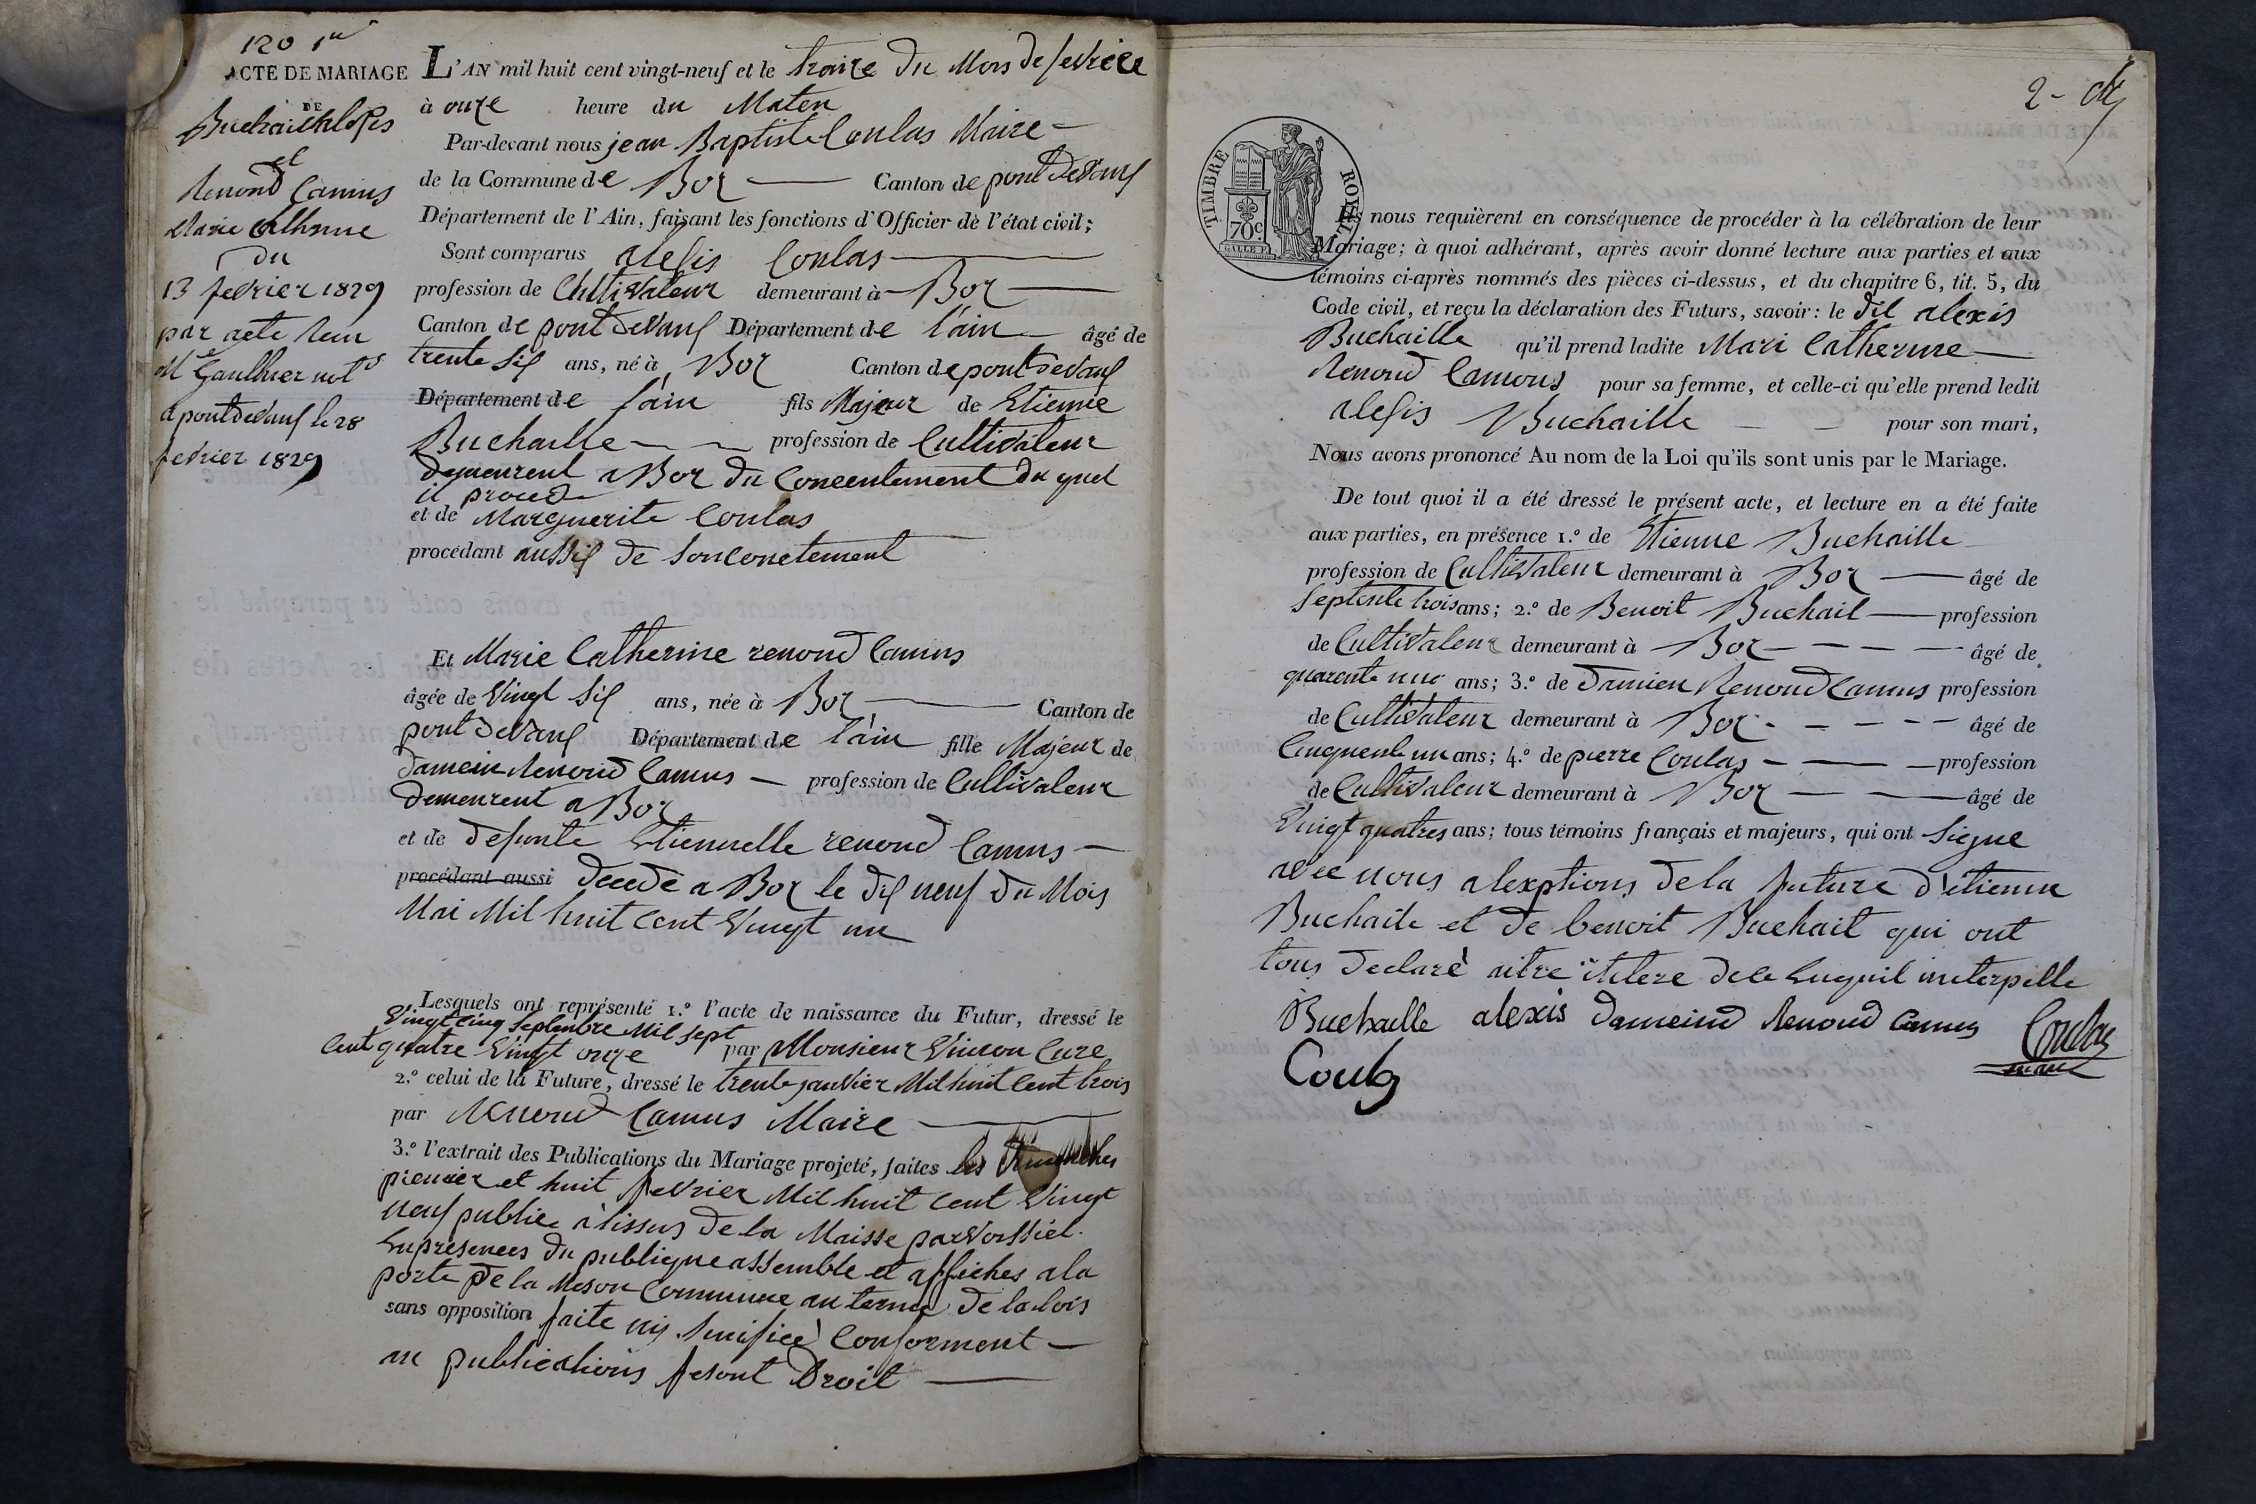 120 1er
ACTE DE MARIAGE
DE
Buchaille
et
Renond Camus
Marie Catherine
du
13 fevrier 1829
par acte reçu
Me Gauthier notre
a pontdevaux le 28
fevrier 1829
L'AN mil huit cent vingt-neuf et le traize du Mois de fevrier
à onze heure du Maten
Par-devant nous jean Baptiste Coulas Maire
de la Commune de Boz Canton de pontdevaux
Département de l'Ain, faisant les fonctions d'Officier de l'état civil;
Sont comparus alexis Coulas
profession de Cultivateur demeurant à Boz
Canton de pontdevaux Département de l'ain âgé de
trente six ans, né à Boz Canton de pontdevaux
Département de l'ain fils Majeur de Etienne
Buchaille profession de Cultivateur
demeurent a Boz du Concentement du quel
il procede
et de Marguerite Coulas
procédant aussi de Sonconctement
Et Marie Catherine renond Camus
âgée de Vingt Six ans, née à Boz Canton de
pontdevaux Département de l'ain fille Majeur de
damein Renond Camus profession de Cultivateur
demeurent a Boz
et de defunte Etiennelle renond Camus
procédant aussi decedé a Boz le dix neuf du Mois
Mai Mil huit Cent Vingt un
Lesquels ont représenté 1.º l'acte de naissance du Futur, dressé le
Vingt Cinq Septenbre Mil Sept
Cent quatre Vingt onze par Monsieur Cure
2.º celui de la Future, dressé le trente janvier Mil huit Cent trois
par Renond Camus Maire
3.º l'extrait des Publications du Mariage projeté, faites les dimenches
premier et huit fevrier Mil huit Cent Vingt
neuf publiee a lissus de la Maisse
Enpresences du publique assemble et affiches ala
porte de la Meson Commune au terme de la lois
sans opposition faite ny Sinifieé Conforment
au publications fesont Droit
2-
TIMBRE ROYAL
70c
Ils nous requièrent en conséquence de procéder à la célébration de leur
Mariage; à quoi adhérant, après avoir donné lecture aux parties et aux
témoins ci-après nommés des pièces ci-dessus, et du chapitre 6, tit. 5, du
Code civil, et reçu la déclaration des Futurs, savoir: le dit alexis
Buchaille qu'il prend ladite Mari Catherine
Renond Camous pour sa femme, et celle-ci qu'elle prend ledit
alexis Buchaille pour son mari,
Nous avons prononcé Au nom de la Loi qu'ils sont unis par le Mariage.
De tout quoi il a été dressé le présent acte, et lecture en a été faite
aux parties, en présence 1.º de Etienne Buchaille
profession de Cultivateur demeurant à Boz âgé de
Septente trois ans; 2.º de Benoit Buchail profession
de Cultivateur demeurant à Boz âgé de
quarente une ans; 3.º de Damien Renond Camus profession
de Cultivateur demeurant à Boz âgé de
Cinquente un ans; 4.º de pierre Coulas profession
de Cultivateur demeurant à Boz âgé de
Vingt quatres ans; tous témoins français et majeurs, qui ont Signe
avec nous alexptions de la future d'étienne
Buchaile et de benoit Buchail qui ont
tous declaré aitre de ce Enquil interpelle
Buchaille alexis Dameind Renond Camus Coulas
maire
Coulas